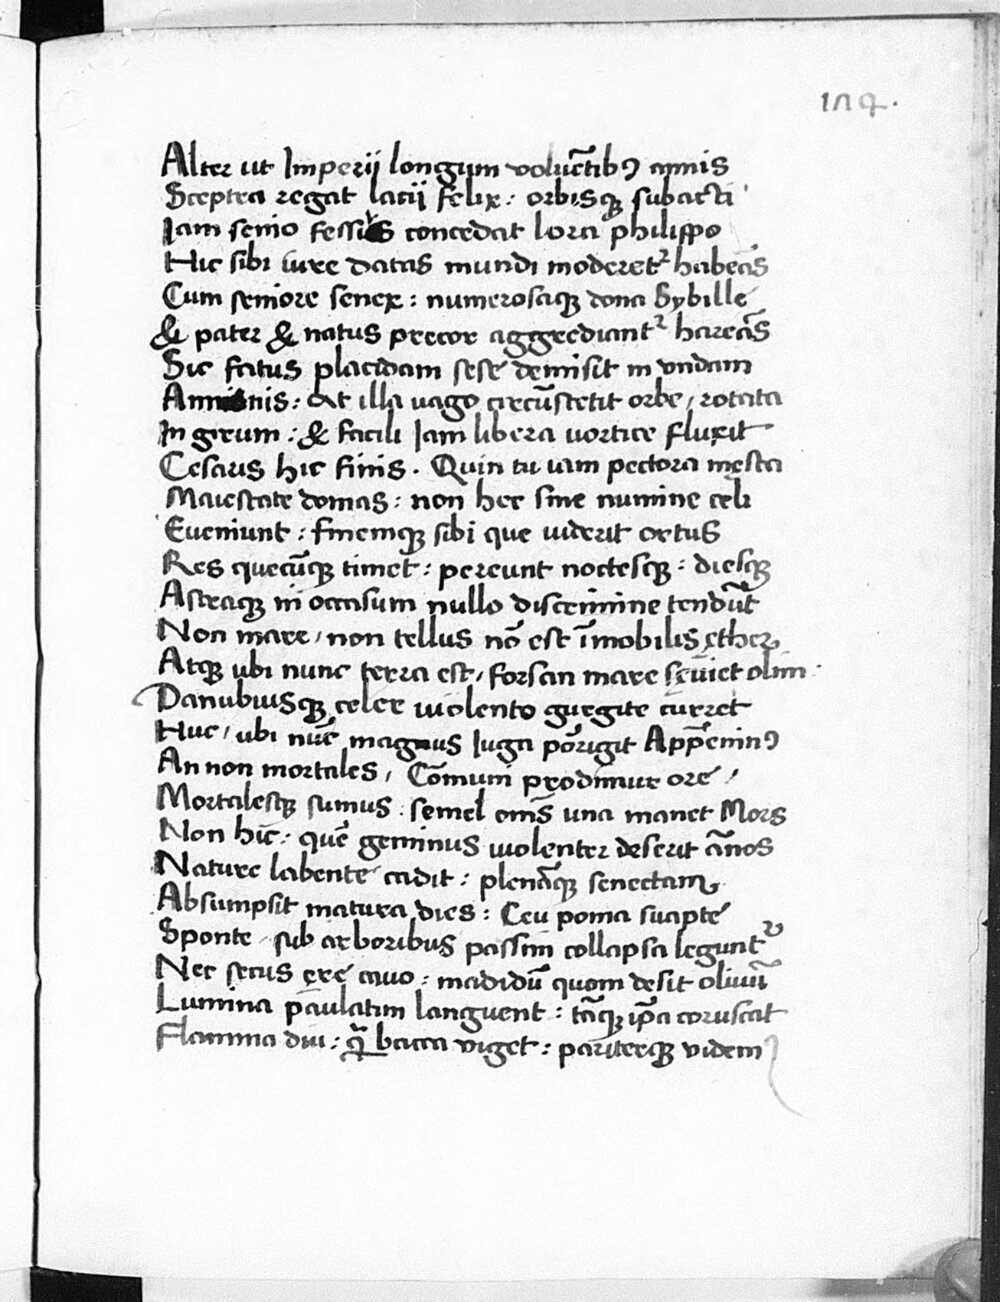 1114.
Alter ut Imperij longum voluẽtibꝰ annis
Sceptra regat latij felix: orbisqꝫ subacti
Jam senio fessus concedat lora philippo
Hic sibi iure datas mundi moderetʳ habẽas
Cum seniore senex: numerosaqꝫ dona Sybille
& pater & natus precor aggrediantʳ harẽas
Sic fatus placidam sese demisit in vndam
Amnis: At illa uago circũstetit orbe, rotata
In girum: & facili Jam libera uortice fluxit
Cesaris hic finis. Quin tu iam pectora męsta
Maiestate domas: non hec sine numine celi
Eueniunt: finemqꝫ sibi que uiderit ortus
Res quecũqꝫ timet: pereunt noctesqꝫ: diesqꝫ
Astraqꝫ in occasum nullo discrimine tendũt
Non mare, non tellus nõ est ĩmobilis ęther
Atqꝫ ubi nunc terra est, forsan mare sęuiet olim:
Danubiusqꝫ celer uiolento gurgite curret
Huc, ubi nũc magnus Juga porrigit Appẽninꝰ
An non mortales, Cõmuni prodimur ore,
Mortalesqꝫ sumus: semel om̃s una manet Mors
Non hic̃: quẽ geminus uiolenter deserit ãnos
Nature labente cadit: plenãqꝫ senectam
Absumpsit matura dies: Ceu poma suapte
Sponte, sub arboribus passim collapsa leguntʳ
Nec secus ęre cauo: madidũ quom desit oliuũ
Lumina paulatim languent: tãqꝫ ip̃a coruscat
Flamma diu: q̃ bacca viget: pariterqꝫ videm